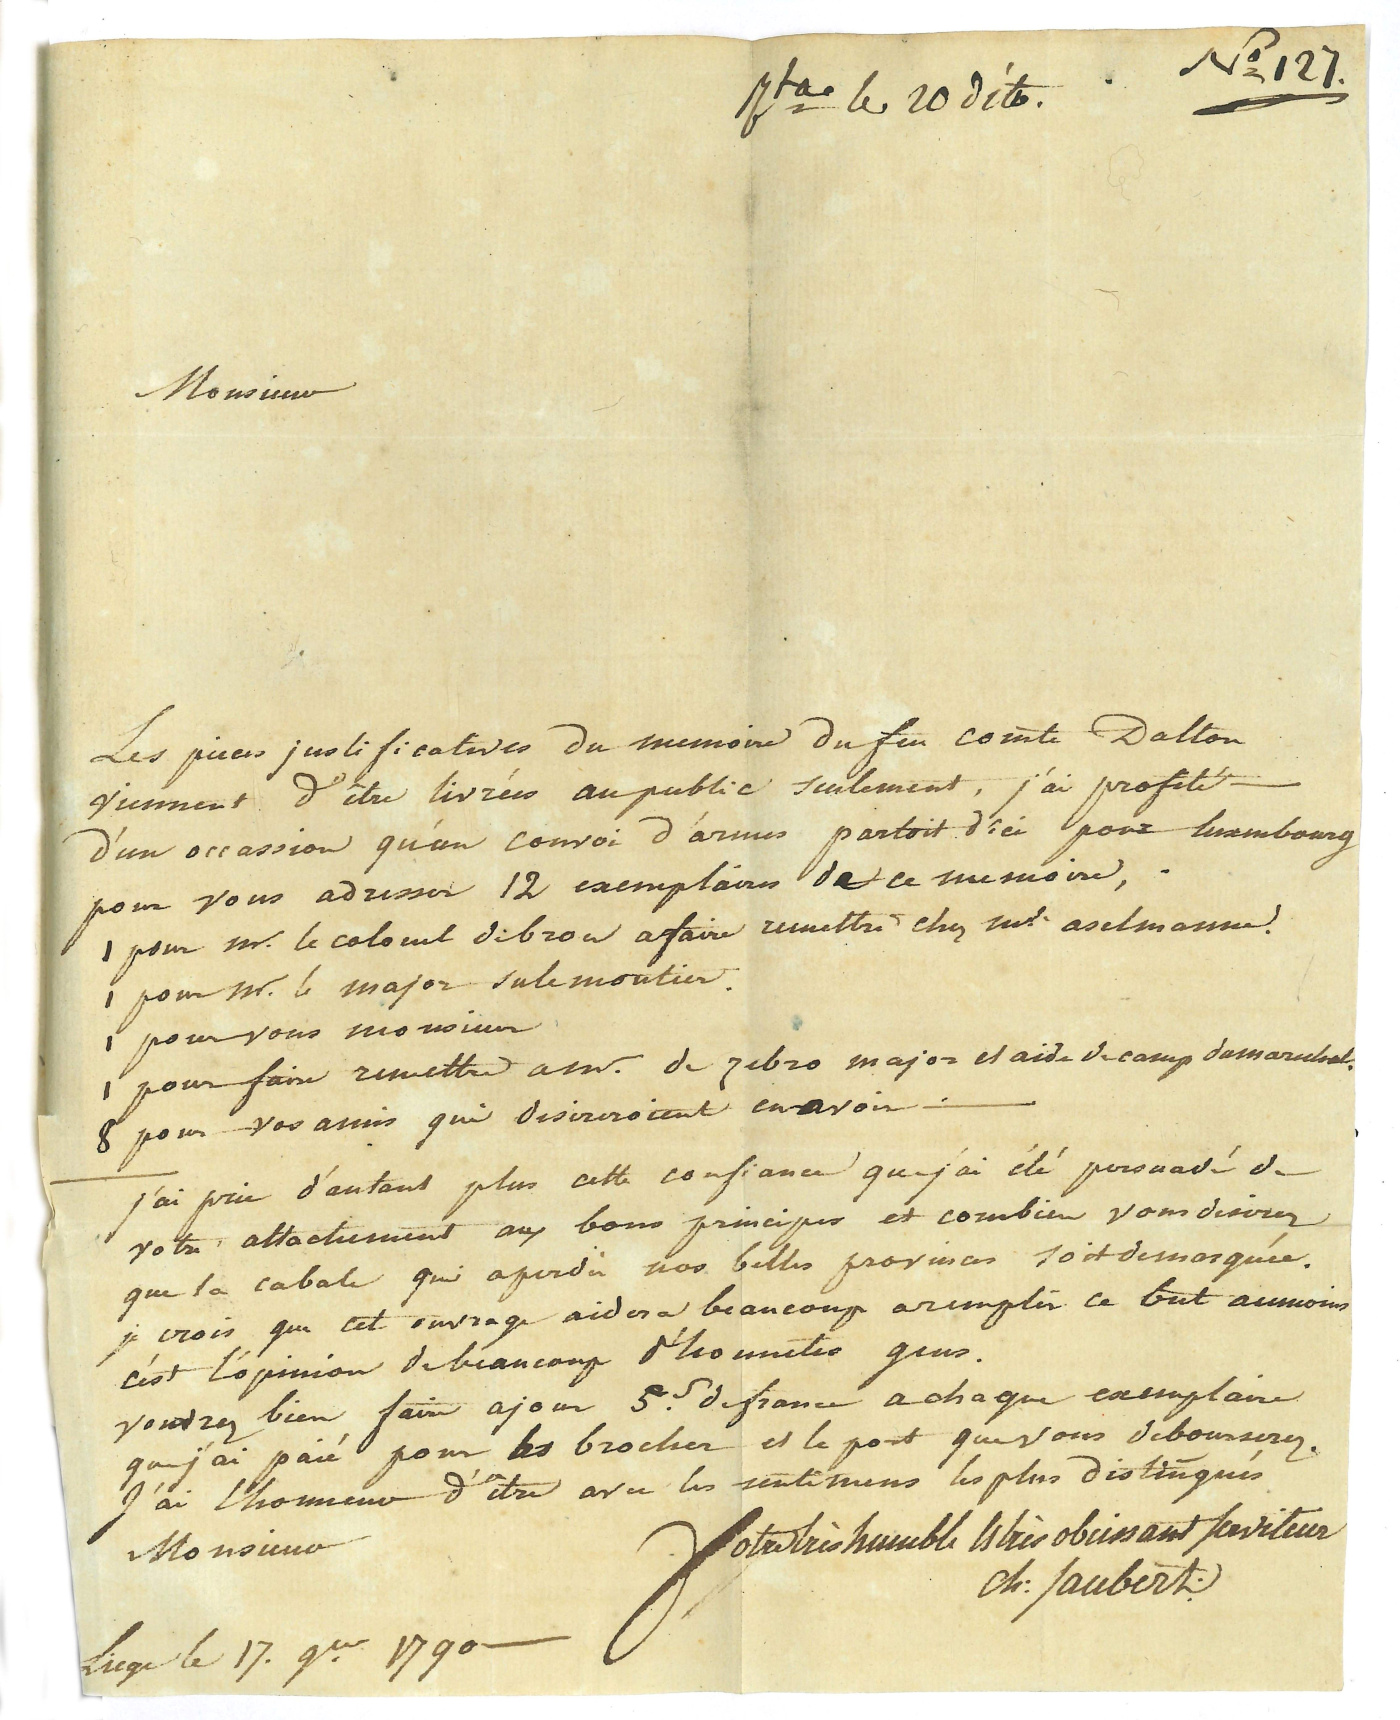 Nº 127.
le 20 Déc.
Monsieur
Les pieces justificatives du memoire du feu comte Dalton
viennent d'être livrées au public seulement, j'ai profité
d'un occassion qu'un convoi d'armes partoit d'ici pour luxembourg
pour vous adresser 12 exemplaires de ce memoire,
1 pour mr. le colonel debrou afaire remettre chez md. aselmanne.
1 pour Mr. le major sulemoutier.
1 pour vous monsieur
1 pour faire remettre a mr. de zebro major et aide de camp du marechal.
8 pour vos amis qui desireroient en avoir.
j'ai prie d'autant plus cette confiance que j'ai été persuadé de
votre attachement aux bons principes et combien vous desirez
que la cabale qui a perdu nos belles provinces soit demasquée.
je crois que cet ouvrage aidera beaucoup aremplir ce but aumoins
c'est l'opinion de beaucoup d'honnetes gens.
voudrez bien faire ajour 5.s de france a chaque exemplaire
que j'ai paié pour les brocher et le port que vous debourserez.
J'ai l'honneur d'être avec les sentimens les plus distingués
Monsieur
Votre très humble et très obeissant serviteur
ch: Jaubert.
Liege le 17. 9bre 1790